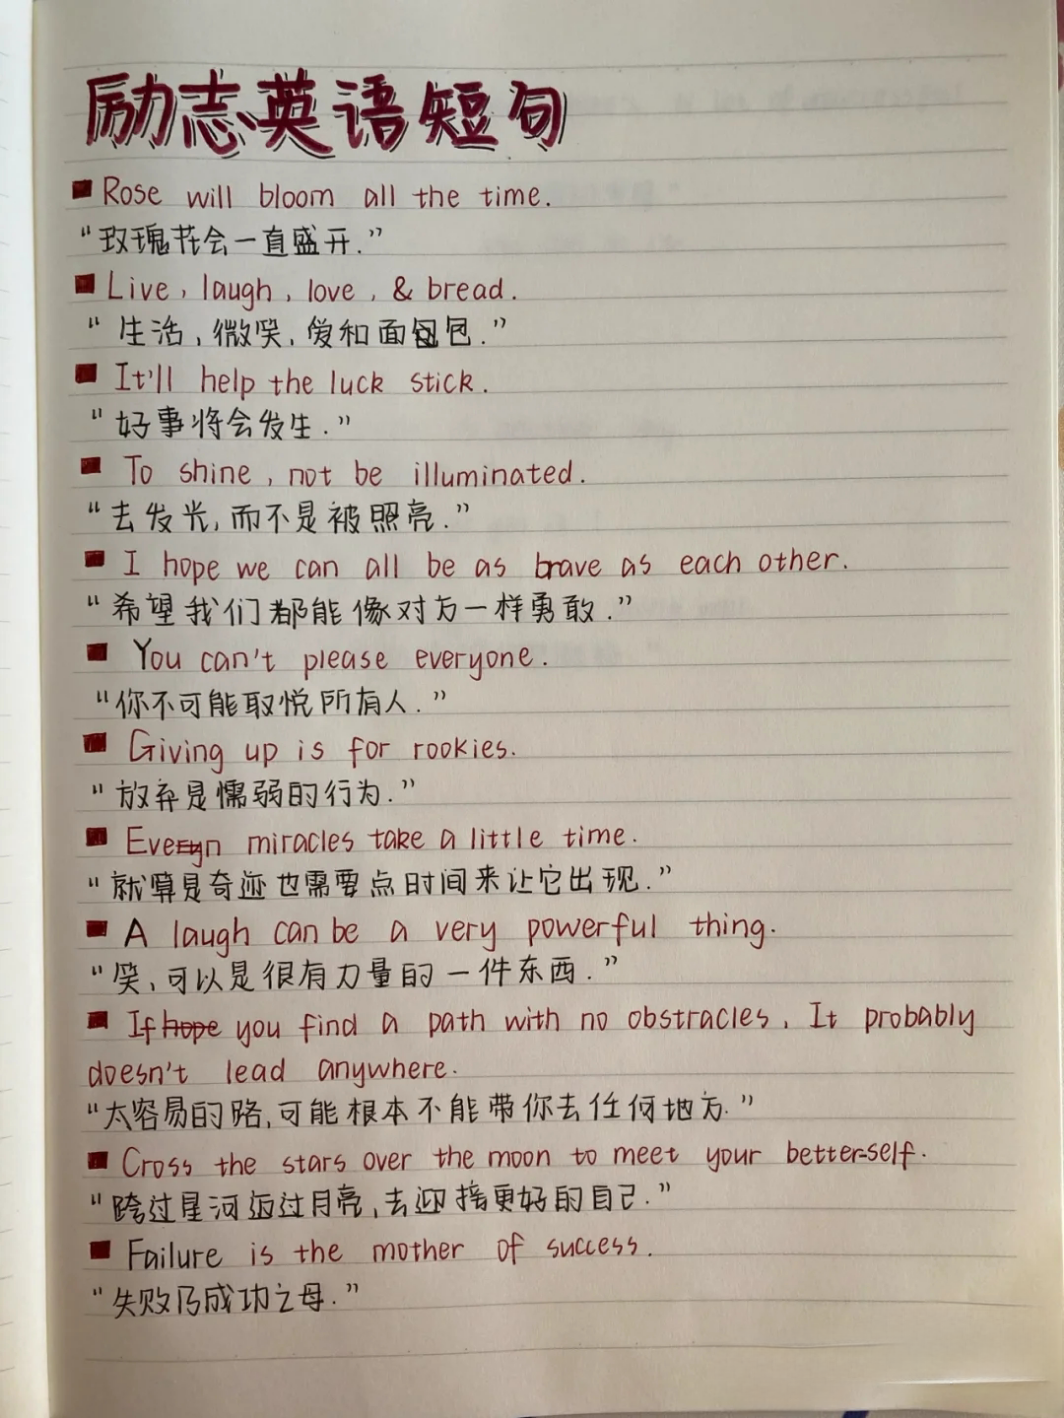 励志英语短句
Rose will bloom all the time.
“玫瑰花会一直盛开.”
Live, laugh, love, & bread.
“生活,微笑,爱和面包.”
It'll help the luck stick.
“好事将会发生.”
To shine, not be illuminated.
“去发光,而不是被照亮.”
I hope we can all be as brave as each other.
“希望我们都能像对方一样勇敢.”
You can't please everyone.
“你不可能取悦所有人.”
Giving up is for rookies.
“放弃是懦弱的行为.”
Even miracles take a little time.
“就算是奇迹也需要点时间来让它出现.”
A laugh can be a very powerful thing.
“笑,可以是很有力量的一件东西.”
If you find a path with no obstracles, It probably
doesn't lead anywhere.
“太容易的路,可能根本不能带你去任何地方.”
Cross the stars over the moon to meet your better-self.
“跨过星河迈过月亮,去迎接更好的自己.”
Failure is the mother of success.
“失败乃成功之母.”